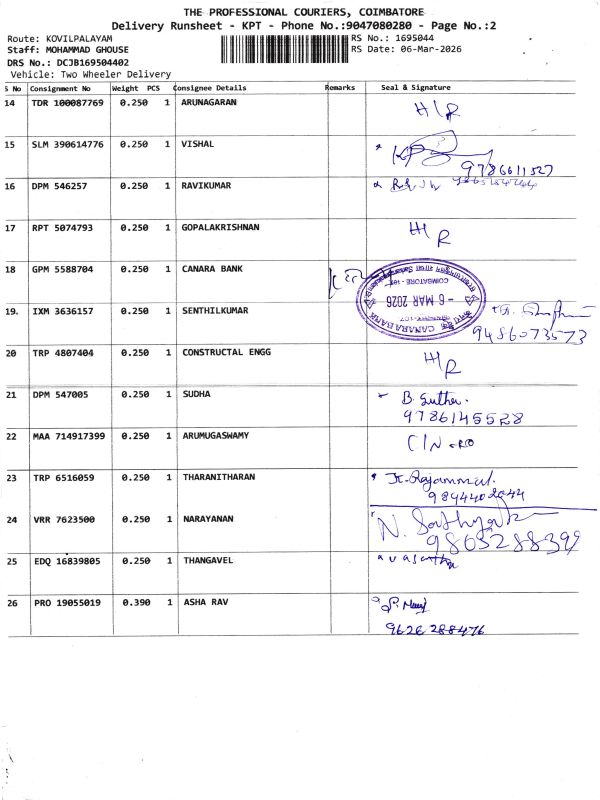 THE PROFESSIONAL COURIERS, COIMBATORE
Delivery Runsheet - KPT - Phone No.:9047080280 - Page No.:2
Route: KOVILPALAYAM RS No.: 1695044
Staff: MOHAMMAD GHOUSE RS Date: 06-Mar-2026
DRS No.: DCJB169504402
Vehicle: Two Wheeler Delivery
S No Consignment No Weight PCS Consignee Details Remarks Seal & Signature
14 TDR 100087769 0.250 1 ARUNAGARAN H/R
15 SLM 390614776 0.250 1 VISHAL
9786611527
16 DPM 546257 0.250 1 RAVIKUMAR
17 RPT 5074793 0.250 1 GOPALAKRISHNAN H/R
18 GPM 5588704 0.250 1 CANARA BANK
COIMBATORE
- 6 MAR 2026
CANARA BANK
19. IXM 3636157 0.250 1 SENTHILKUMAR
9486073573
20 TRP 4807404 0.250 1 CONSTRUCTAL ENGG H/R
21 DPM 547005 0.250 1 SUDHA B. Sutha.
9786145528
22 MAA 714917399 0.250 1 ARUMUGASWAMY
23 TRP 6516059 0.250 1 THARANITHARAN K. Rajammal.
24 VRR 7623500 0.250 1 NARAYANAN N. Sathya
25 EDQ 16839805 0.250 1 THANGAVEL vasantha
26 PRO 19055019 0.390 1 ASHA RAV
9626288476